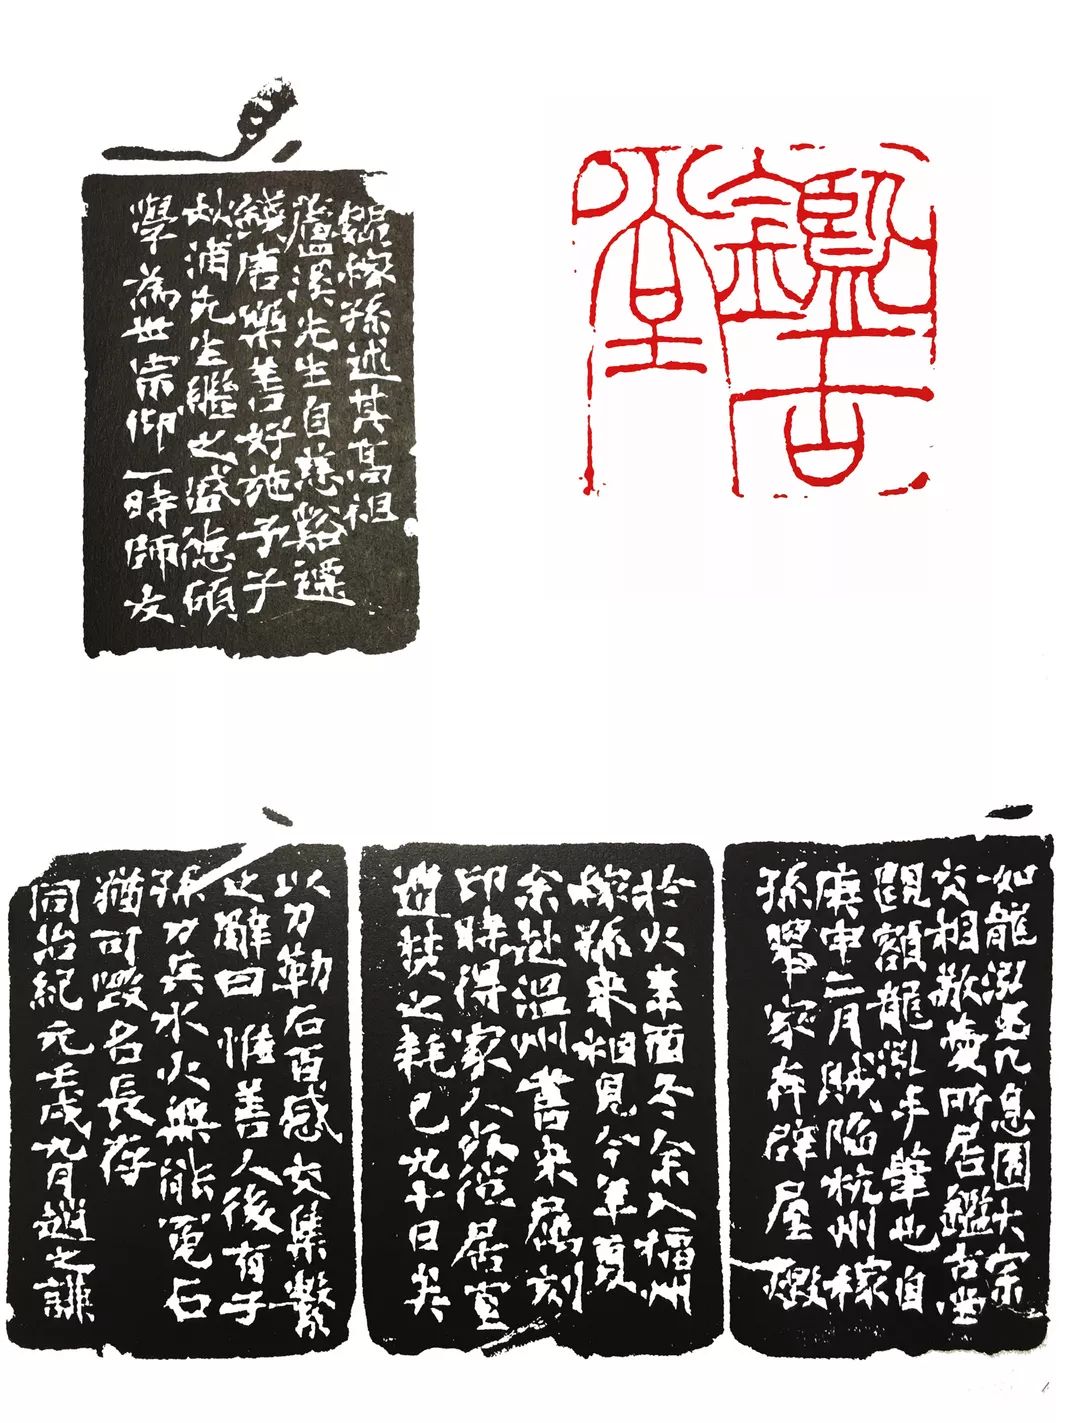 鑑古堂
錫穄孫述其高祖
蘆溪先生自慈谿遷
錢唐樂善好施予子
秋浦先生繼之盛德碩
學為世宗仰一時師友
如龍泓丞凡息園大宗
交相敬愛所居鑑古堂
觀額龍泓手筆也自
庚申二月賊陷杭州稼
孫舉家奔辟屋
於火辛酉冬余入福州
稼孫來相見今年夏
余赴溫州書來屬刻
印時得家人從居室
遊焚之耗已九十日矣
以刀勒石百感交集繫
之辭曰惟善人後有子
孫刀兵水火無能冤石
猶可毀名長存
同治紀元壬戌九月趙之謙